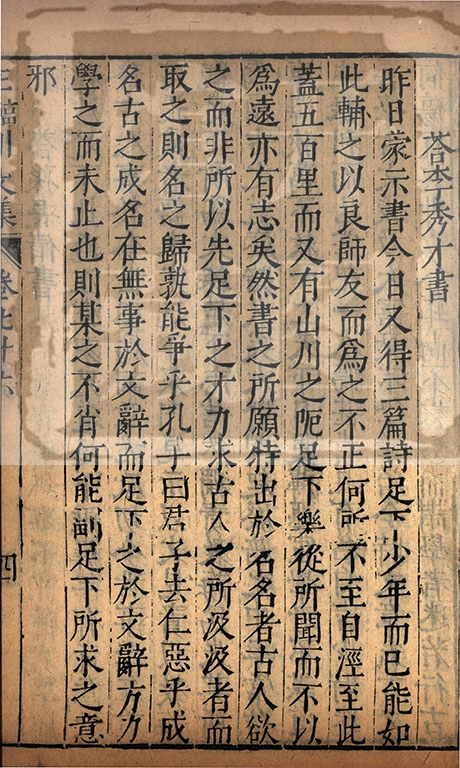 荅李秀才書
昨日蒙示書今日又得三篇詩足下少年而已能如
此輔之以良師友而爲之不止何所不至自涇至此
蓋五百里而又有山川之阨足下樂從所聞而不以
爲遠亦有志矣然書之所願特出於名名者古人欲
之而非所以先足下之才力求古人之所汲汲者而
取之則名之歸孰能爭乎孔子曰君子去仁惡乎成
名古之成名在無事於文辭而足下之於文辭方力
學之而未止也則某之不肖何能副足下所求之意
邪
王臨川文集 卷七十六 四